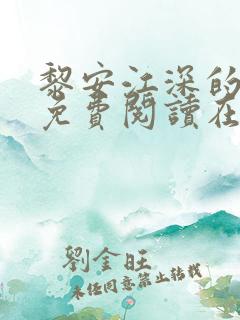 黎安江深的
免費閱讀在
劉金旺
未經同意禁止轉載